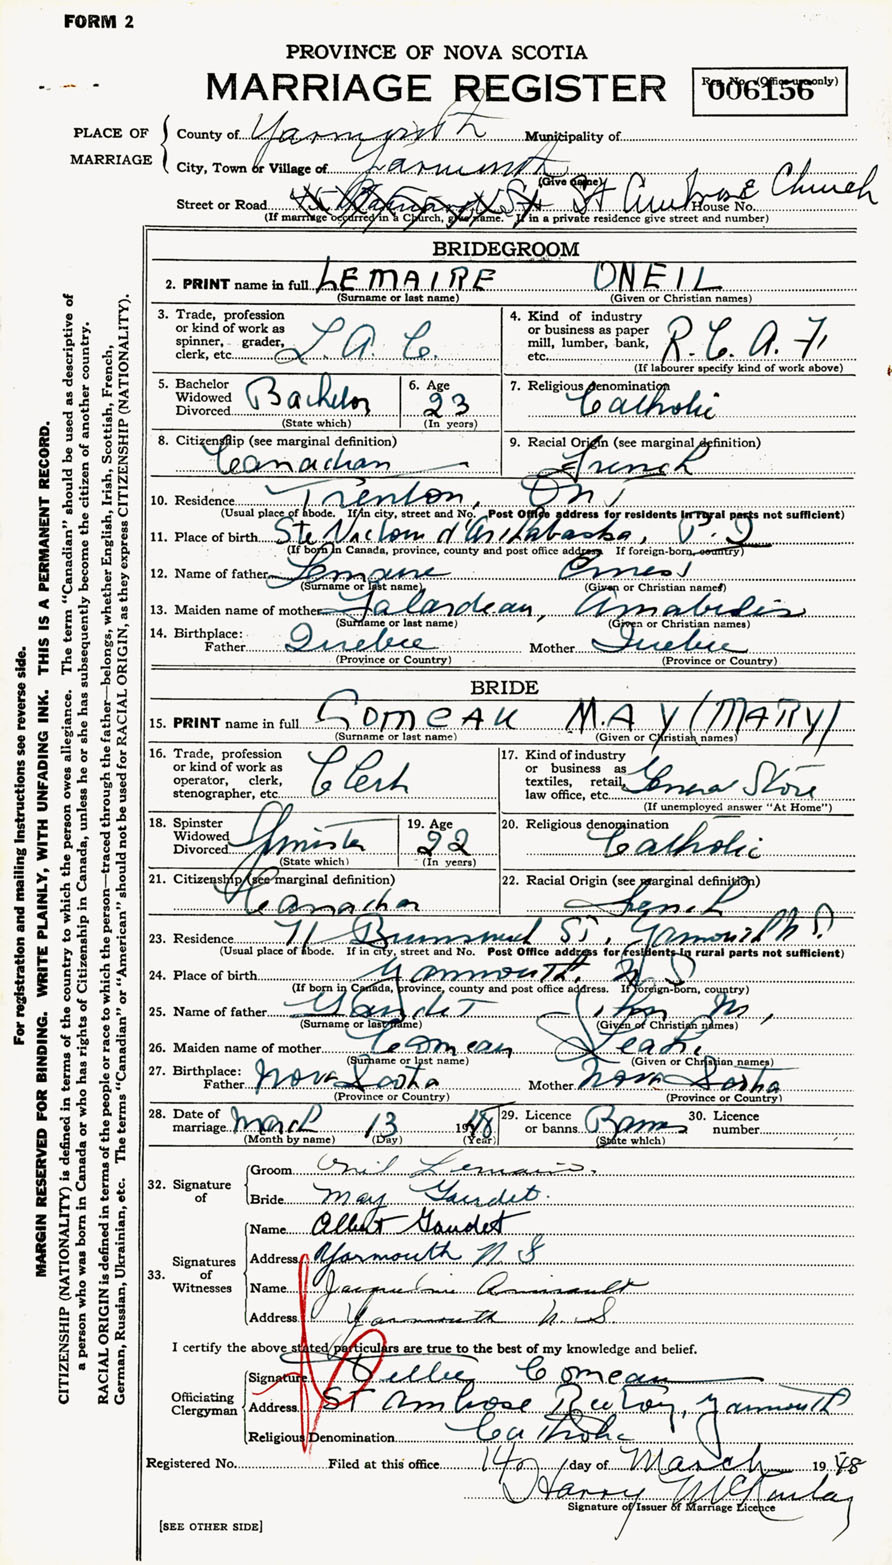 FORM 2
PROVINCE OF NOVA SCOTIA
MARRIAGE REGISTER
Reg. No. (Office use only)
006156
PLACE OF MARRIAGE
County of Yarmouth Municipality of
City, Town or Village of Yarmouth
(Give name)
Street or Road St Ambrose Church House No.
(If marriage occurred in a Church, give name. If in a private residence give street and number)
BRIDEGROOM
2. PRINT name in full LEMAIRE ONEIL
(Surname or last name) (Given or Christian names)
3. Trade, profession or kind of work as spinner, grader, clerk, etc. L.A.C.
4. Kind of industry or business as paper mill, lumber, bank, etc. R.C.A.F.
(If labourer specify kind of work above)
5. Bachelor Widowed Divorced Bachelor
(State which)
6. Age 23
(In years)
7. Religious denomination Catholic
8. Citizenship (see marginal definition) Canadian
9. Racial Origin (see marginal definition) French
10. Residence Trenton, Ont
(Usual place of abode. If in city, street and No. Post Office address for residents in rural parts not sufficient)
11. Place of birth Ste Victoire d'Arthabaska, P.Q
(If born in Canada, province, county and post office address. If foreign-born, country)
12. Name of father Lemaire Ernest
(Surname or last name) (Given or Christian names)
13. Maiden name of mother
(Surname or last name) (Given or Christian names)
14. Birthplace: Father Quebec Mother Quebec
(Province or Country) (Province or Country)
BRIDE
15. PRINT name in full COMEAU MAY (MARY)
(Surname or last name) (Given or Christian names)
16. Trade, profession or kind of work as operator, clerk, stenographer, etc. Clerk
17. Kind of industry or business as textiles, retail, law office, etc. General Store
(If unemployed answer "At Home")
18. Spinster Widowed Divorced Spinster
(State which)
19. Age 22
(In years)
20. Religious denomination Catholic
21. Citizenship (see marginal definition) Canadian
22. Racial Origin (see marginal definition) French
23. Residence 71 Brunswick St, Yarmouth N.S
(Usual place of abode. If in city, street and No. Post Office address for residents in rural parts not sufficient)
24. Place of birth Yarmouth, N S
(If born in Canada, province, county and post office address. If foreign-born, country)
25. Name of father Gaudet John M,
(Surname or last name) (Given or Christian names)
26. Maiden name of mother Comeau Leah,
(Surname or last name) (Given or Christian names)
27. Birthplace: Father Nova Scotia Mother Nova Scotia
(Province or Country) (Province or Country)
28. Date of marriage March 13 1948
(Month by name) (Day) (Year)
29. Licence or banns Banns
(State which)
30. Licence number
32. Signature of
Groom Oneil Lemaire.
Bride May Gaudet.
33. Signatures of Witnesses
Name Albert Gaudet
Address Yarmouth N S
Name Jacqueline Amirault
Address Yarmouth N. S
I certify the above stated particulars are true to the best of my knowledge and belief.
Officiating Clergyman
Signature Comeau
Address St Ambrose Rectory, Yarmouth
Religious Denomination Catholic
Registered No. Filed at this office 14 day of March 1948
Harry McKinlay
Signature of Issuer of Marriage Licence
[SEE OTHER SIDE]
For registration and mailing instructions see reverse side.
MARGIN RESERVED FOR BINDING. WRITE PLAINLY, WITH UNFADING INK. THIS IS A PERMANENT RECORD.
CITIZENSHIP (NATIONALITY) is defined in terms of the country to which the person owes allegiance. The term "Canadian" should be used as descriptive of
a person who was born in Canada or who has rights of Citizenship in Canada, unless he or she has subsequently become the citizen of another country.
RACIAL ORIGIN is defined in terms of the people or race to which the person—traced through the father—belongs, whether English, Irish, Scottish, French,
German, Russian, Ukrainian, etc. The terms "Canadian" or "American" should not be used for RACIAL ORIGIN, as they express CITIZENSHIP (NATIONALITY).